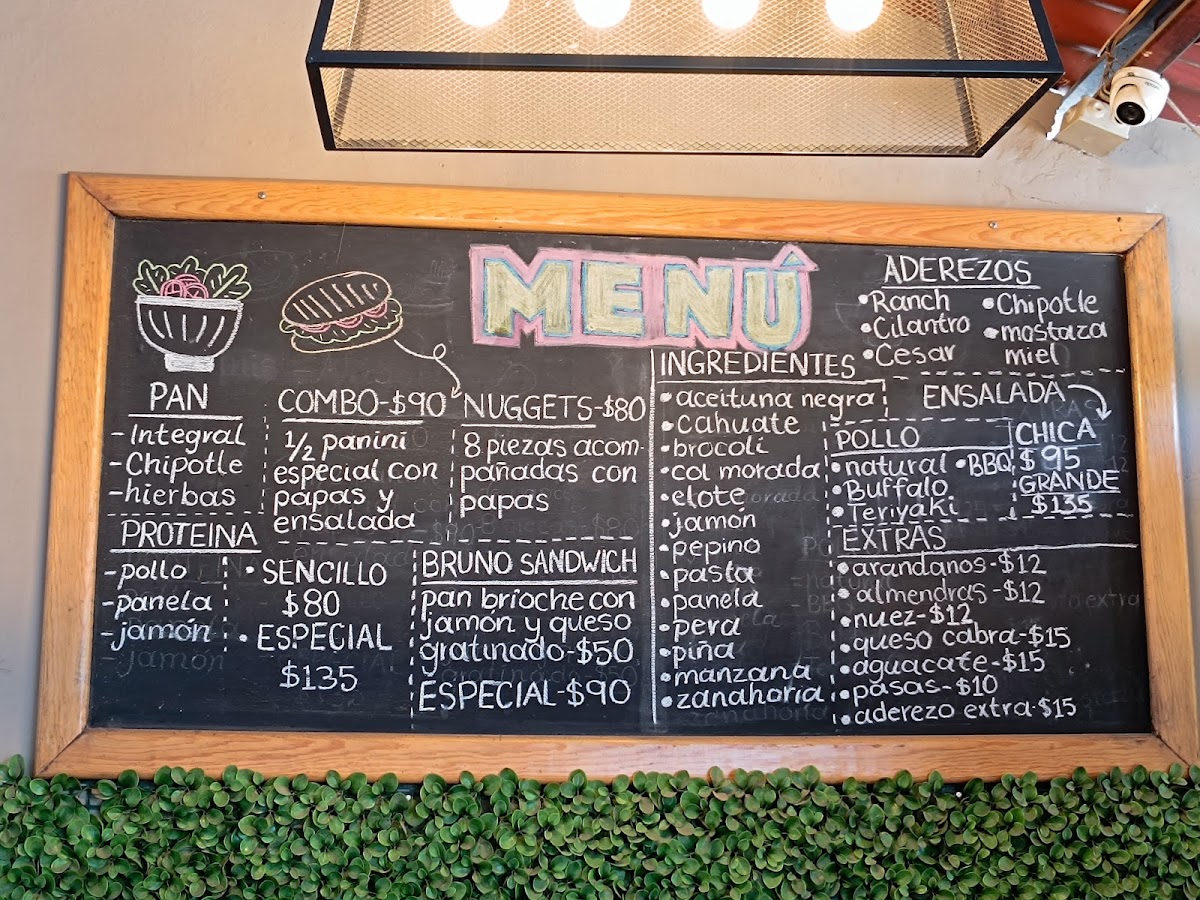 MENÚ
PAN
-Integral
-Chipotle
-hierbas
PROTEINA
-pollo
-panela
-jamón
COMBO-$90
1/2 panini
especial con
papas y
ensalada
NUGGETS-$80
8 piezas acom-
pañadas con
papas
• SENCILLO
$80
• ESPECIAL
$135
BRUNO SANDWICH
pan brioche con
jamón y queso
gratinado-$50
ESPECIAL-$90
INGREDIENTES
• aceituna negra
• cahuate
• brocoli
• col morada
• elote
• jamón
• pepino
• pasta
• panela
• pera
• piña
• manzana
• zanahoria
ADEREZOS
• Ranch
• Cilantro
• Cesar
• Chipotle
• mostaza
miel
ENSALADA
CHICA
$95
GRANDE
$135
POLLO
• natural • BBQ
• Buffalo
• Teriyaki
EXTRAS
• arandanos-$12
• almendras-$12
• nuez-$12
• queso cabra-$15
• aguacate-$15
• pasas-$10
• aderezo extra-$15